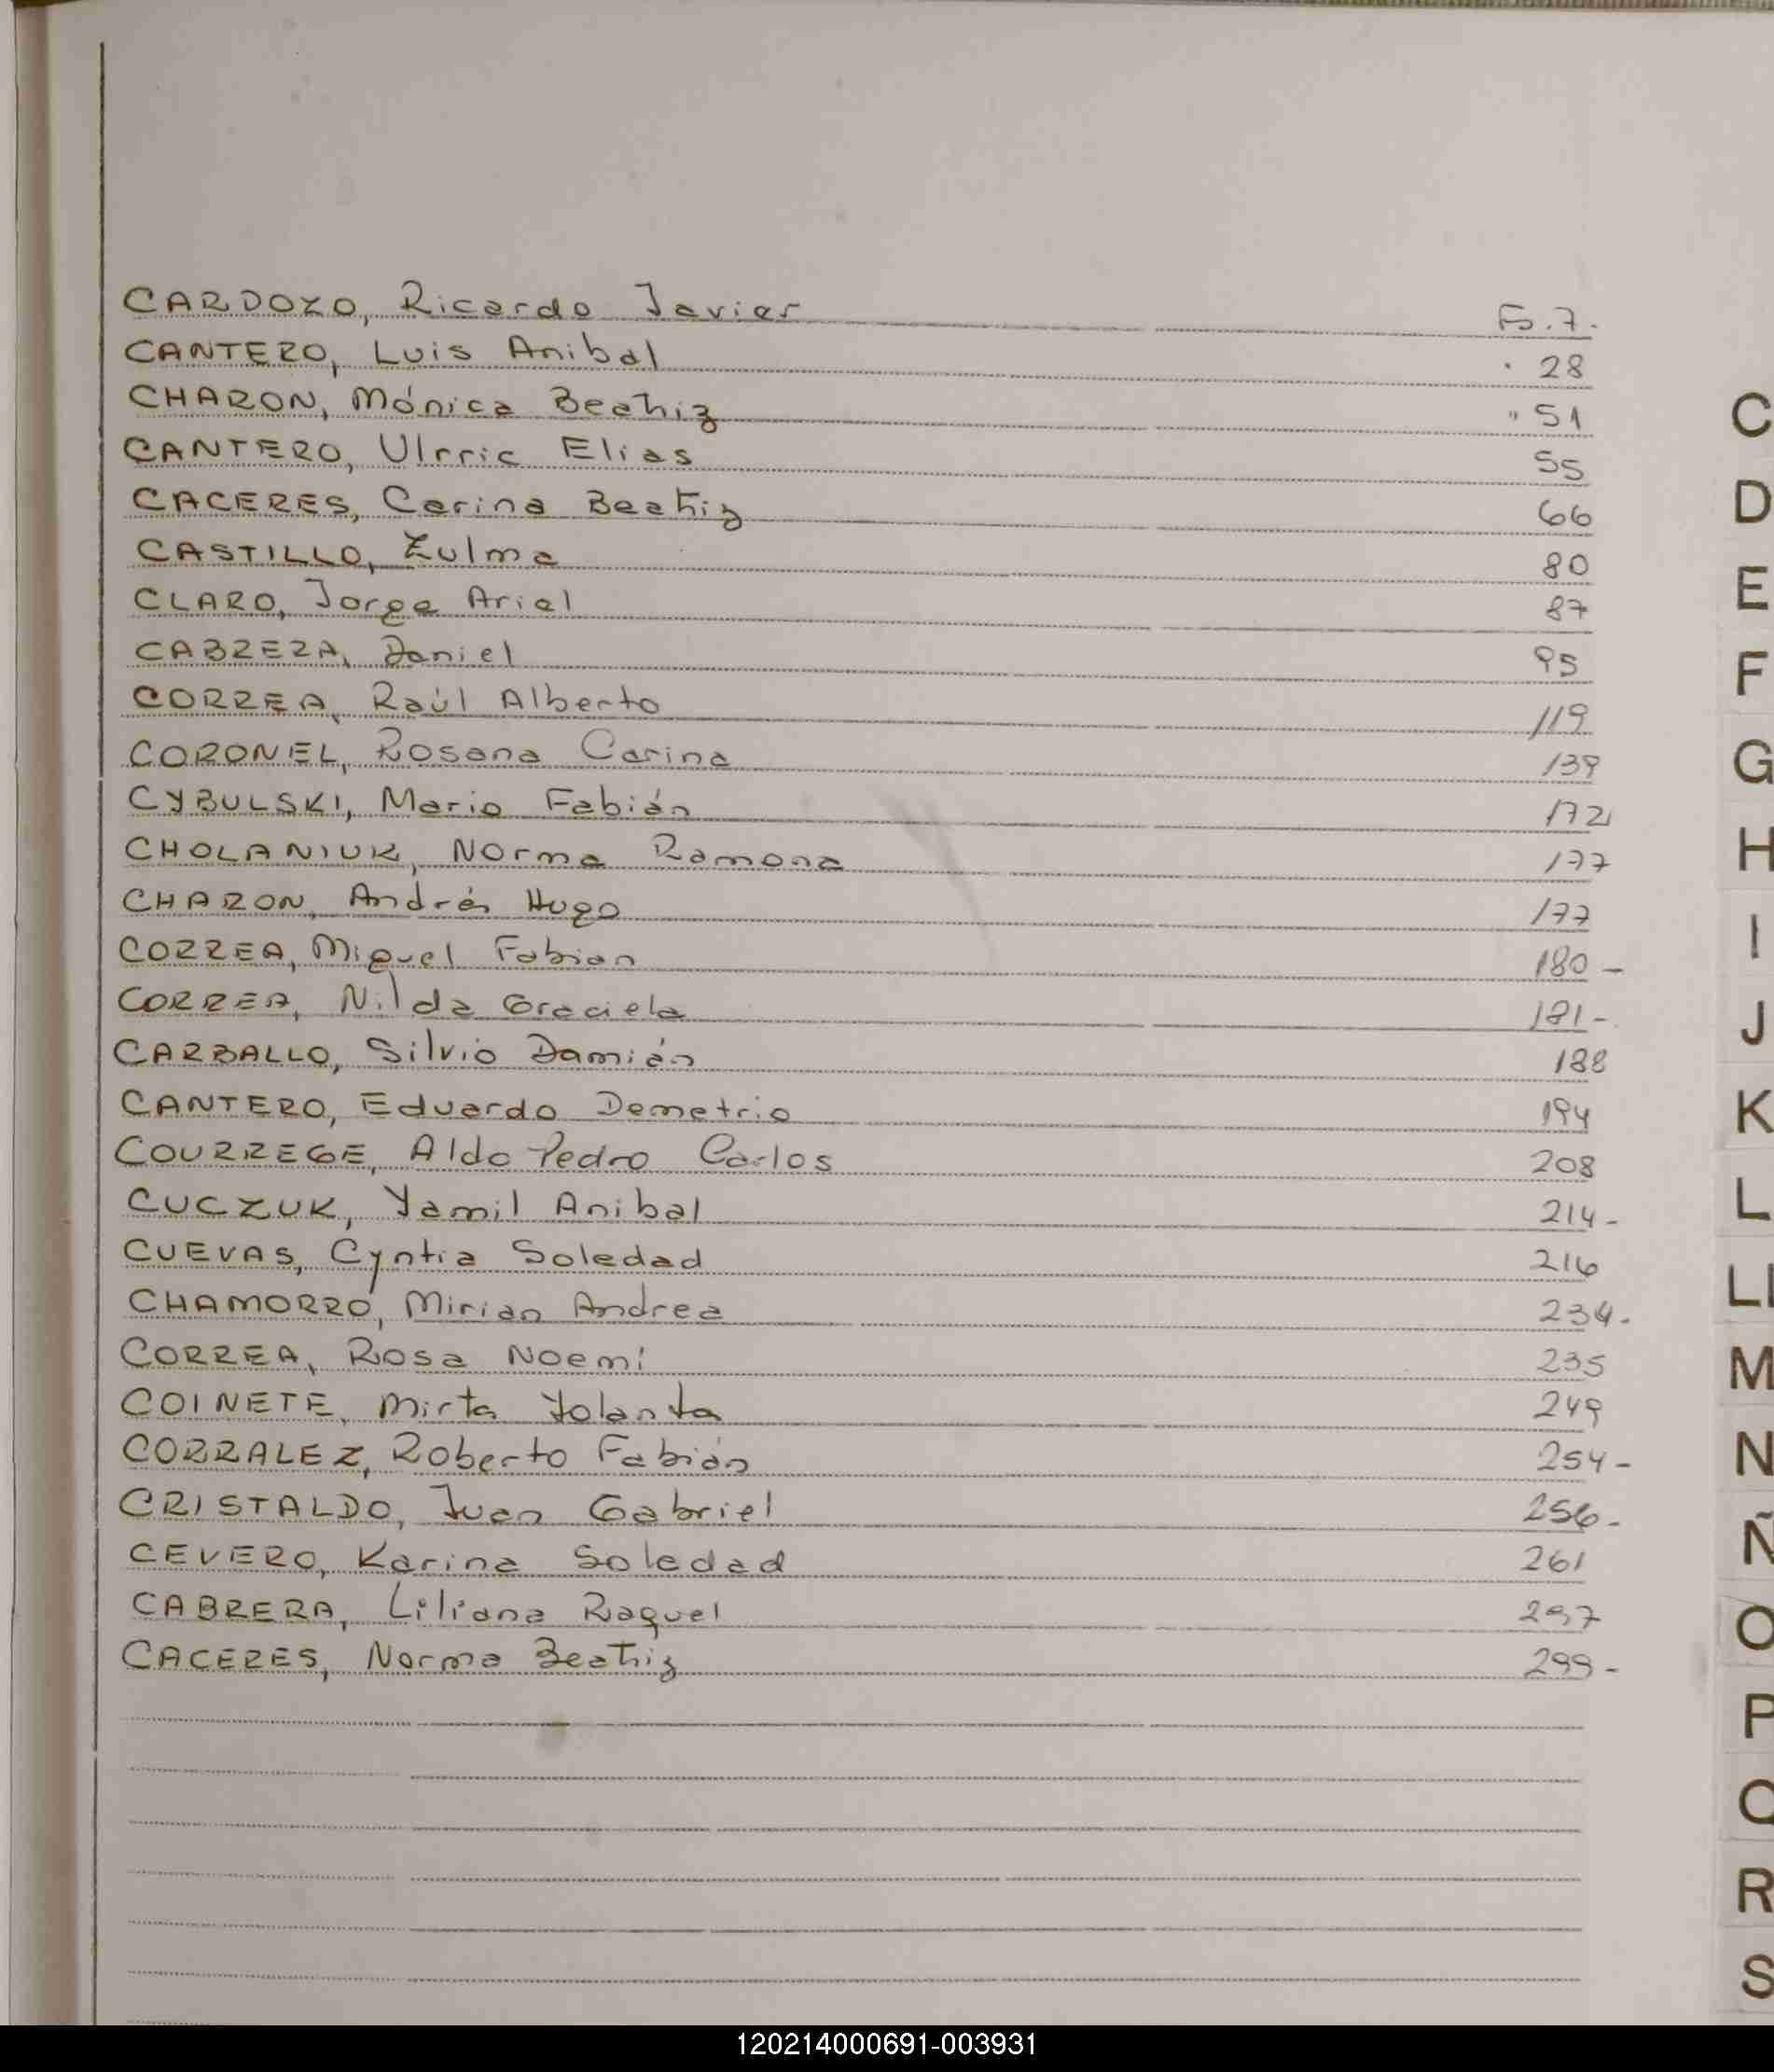 CARDOZO, Ricardo Javier Fs. 7.
CANTERO, Luis Anibal " 28
CHARON, Mónica Beatriz " 51
CANTERO, Ulrric Elias 55
CACERES, Carina Beatriz 66
CASTILLO, Zulma 80
CLARO, Jorge Ariel 87
CABRERA, Daniel 95
CORREA, Raúl Alberto 119
CORONEL, Rosana Carina 139
CYBULSKI, Mario Fabián 172
CHOLANIUK, Norma Ramona 177
CHARON, Andrés Hugo 177
CORREA, Miguel Fabian 180 -
CORREA, Nilda Graciela 181 -
CARBALLO, Silvio Damián 188
CANTERO, Eduardo Demetrio 194
COURREGE, Aldo Pedro Carlos 208
CUCZUK, Yamil Anibal 214 -
CUEVAS, Cyntia Soledad 216
CHAMORRO, Mirian Andrea 234 -
CORREA, Rosa Noemí 235
COINETE, Mirta Yolanta 249
CORRALEZ, Roberto Fabián 254 -
CRISTALDO, Juan Gabriel 256 -
CEVERO, Karina Soledad 261
CABRERA, Liliana Raquel 297
CACERES, Norma Beatriz 299 -
C
D
E
F
G
H
I
J
K
L
Ll
M
N
Ñ
O
P
Q
R
S
120214000691-003931